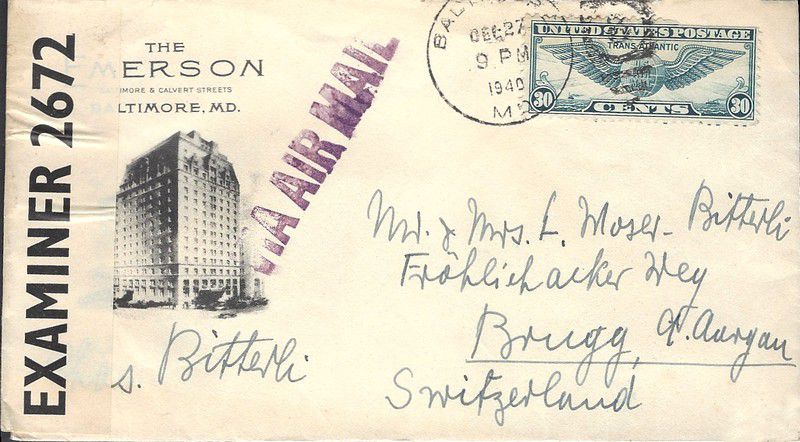 EXAMINER 2672
THE
EMERSON
BALTIMORE & CALVERT STREETS
BALTIMORE, MD.
VIA AIR MAIL
DEC 27
9 PM
1940
MD
UNITED STATES POSTAGE
TRANS-ATLANTIC
30 CENTS 30
Mr. & Mrs. L. Moser-Bitterli
Fröhlichacker Weg
Brugg, Ct. Aargau
Switzerland
s. Bitterli